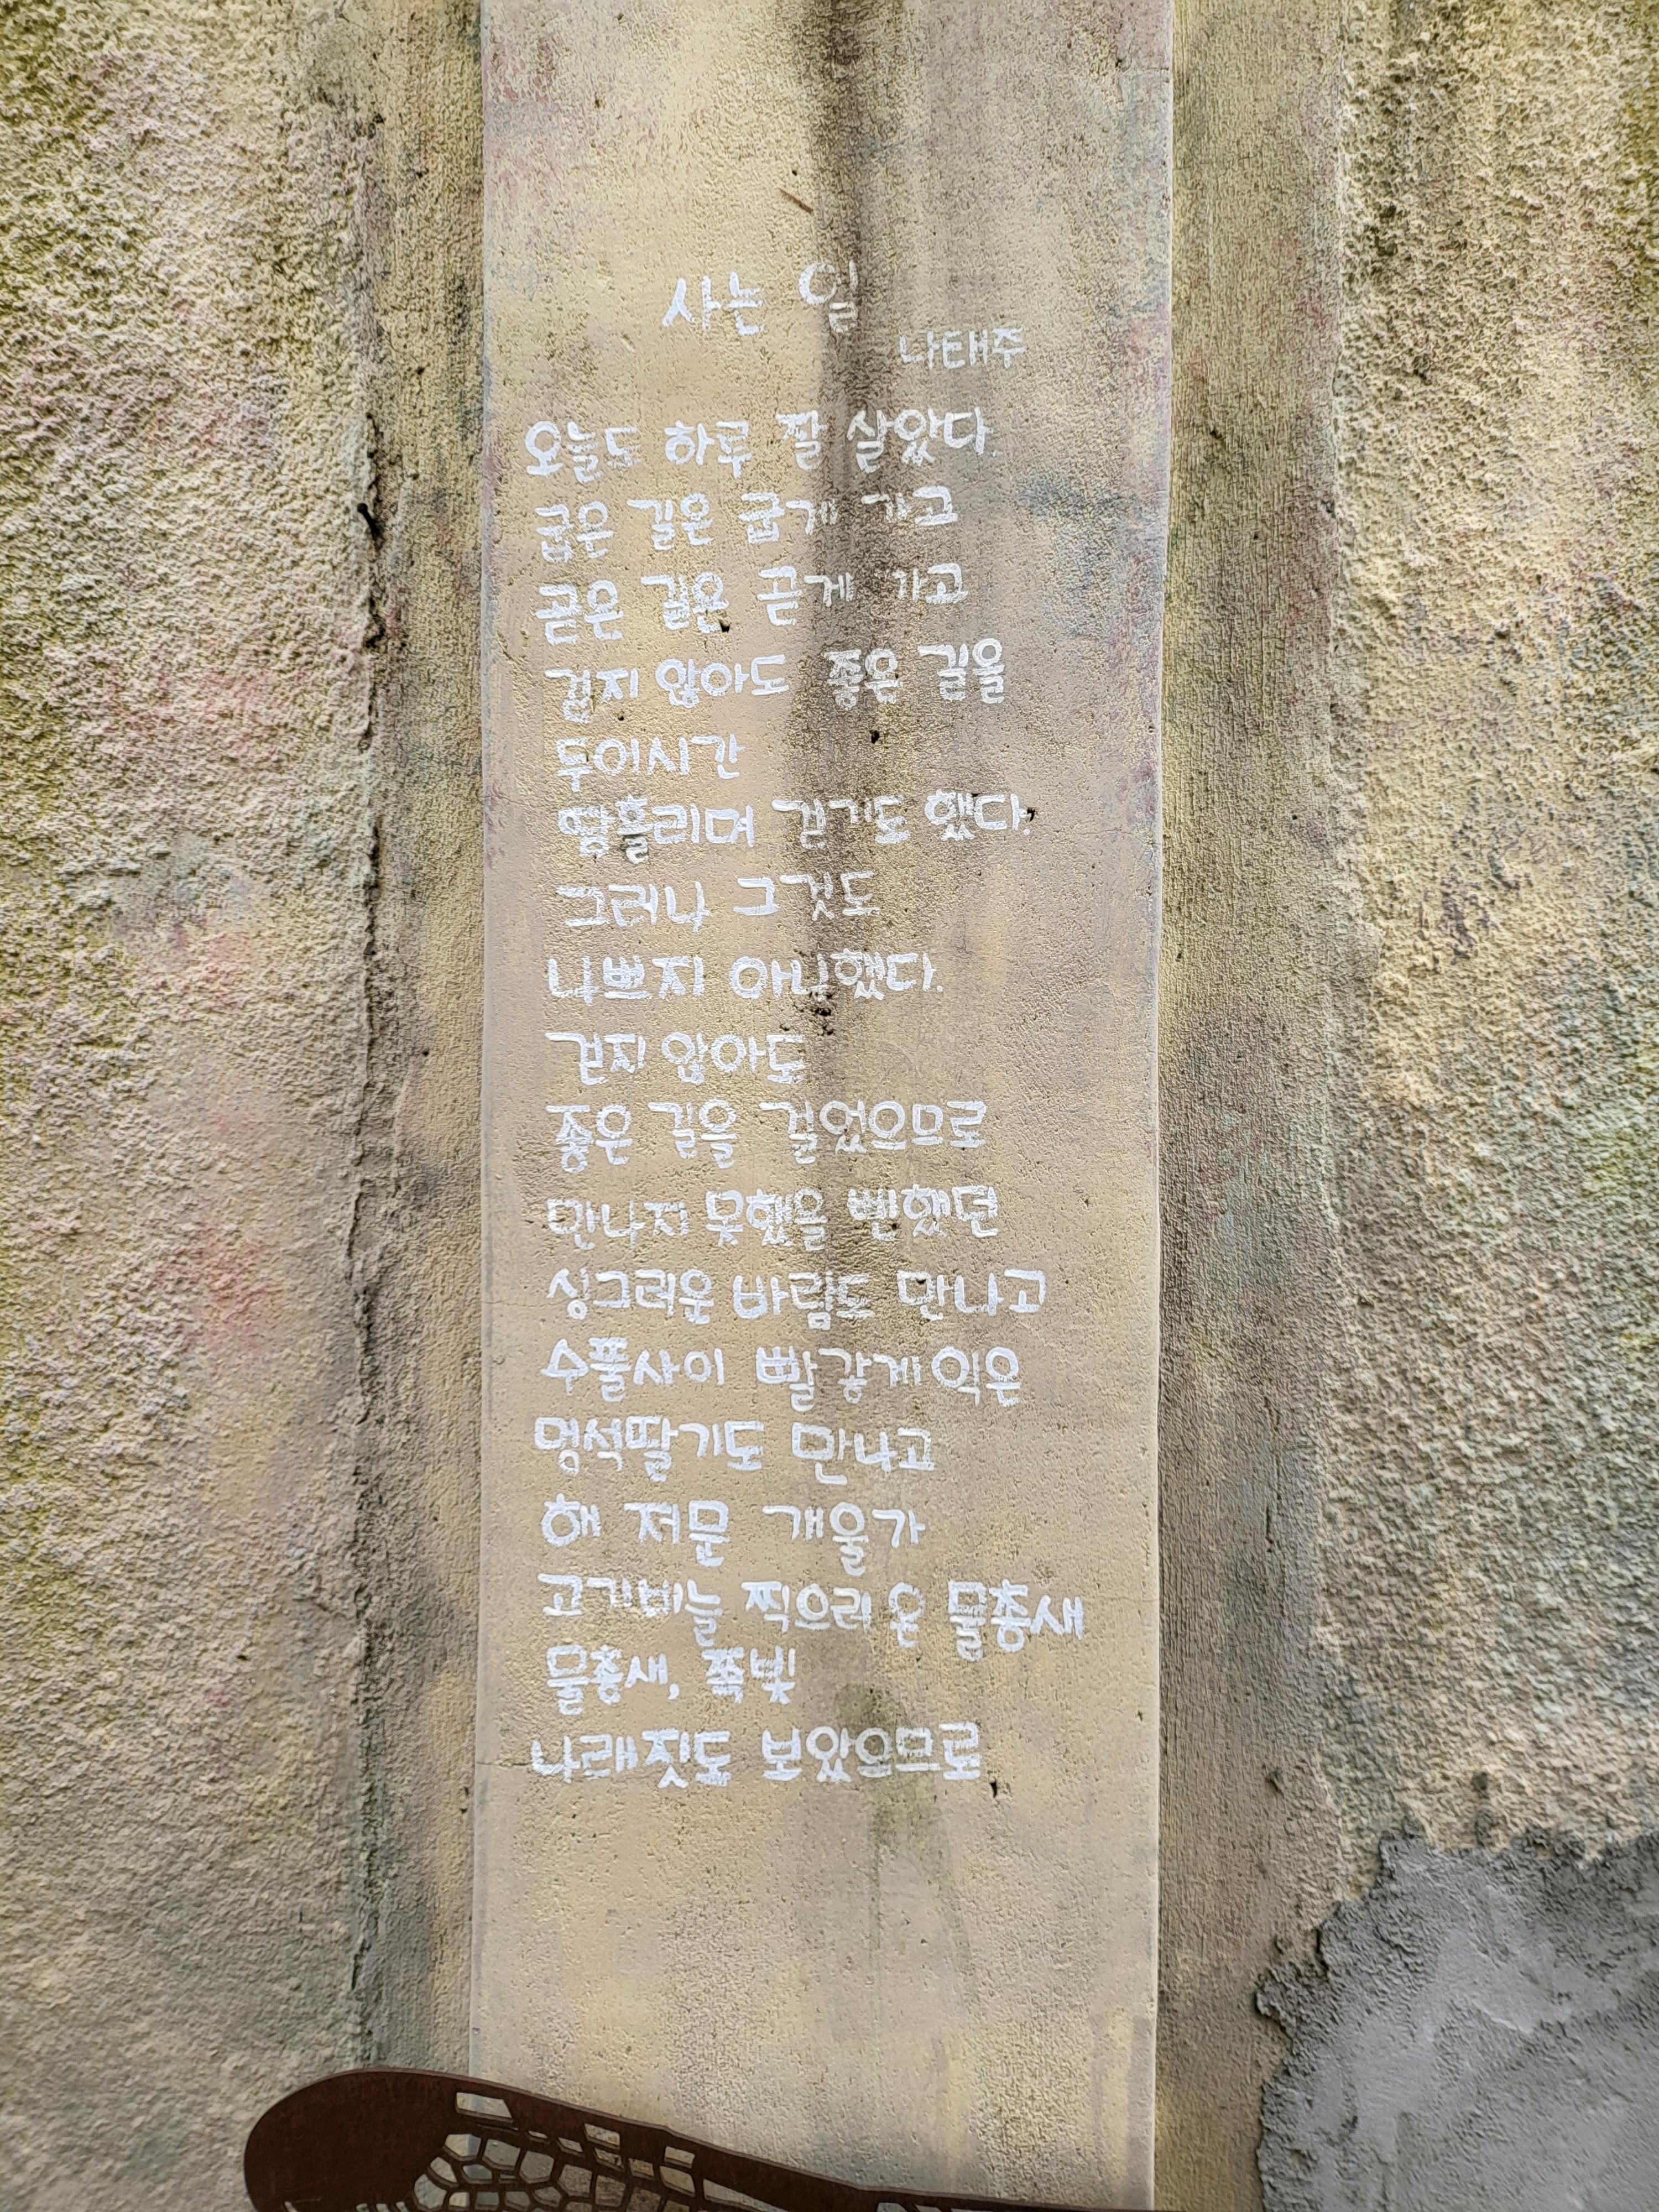 사는 일
나태주
오늘도 하루 잘 살았다.
굽은 길은 굽게 가고
곧은 길은 곧게 가고
걷지 않아도 좋은 길을
두어시간
땀흘리며 걷기도 했다.
그러나 그것도
나쁘지 아니했다.
걷지 않아도
좋은 길을 걸었으므로
만나지 못했을 뻔했던
싱그러운 바람도 만나고
수풀사이 빨갛게 익은
멍석딸기도 만나고
해 저문 개울가
고기비늘 찍으러 온 물총새
물총새, 쪽빛
나래짓도 보았으므로